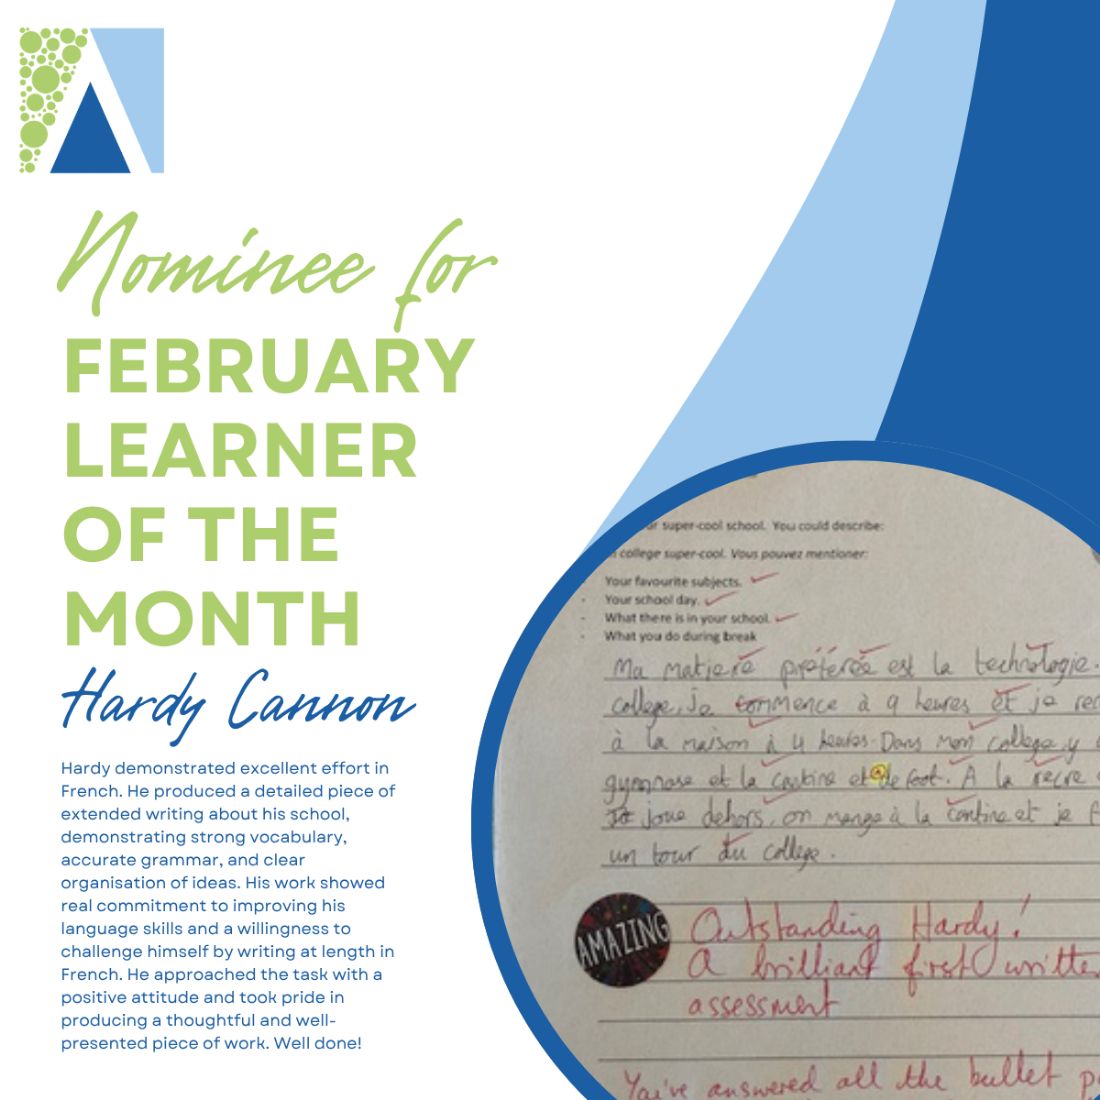 Nominee for
FEBRUARY
LEARNER
OF THE
MONTH
Hardy Cannon
Hardy demonstrated excellent effort in
French. He produced a detailed piece of
extended writing about his school,
demonstrating strong vocabulary,
accurate grammar, and clear
organisation of ideas. His work showed
real commitment to improving his
language skills and a willingness to
challenge himself by writing at length in
French. He approached the task with a
positive attitude and took pride in
producing a thoughtful and well-
presented piece of work. Well done!
super-cool school. You could describe:
college super-cool. Vous pouvez mentioner:
Your favourite subjects.
Your school day.
What there is in your school.
What you do during break
Ma matiere préférée est la technologie.
college. Je commence à 9 heures et je
à la maison à 4 heures. Dans mon college, y
gymnase et la cantine et de foot. A la recre
Je joue dehors, on mange à la cantine et je
un tour du college.
AMAZING
Outstanding Hardy!
A brilliant first
assessment
You've answered all the bullet